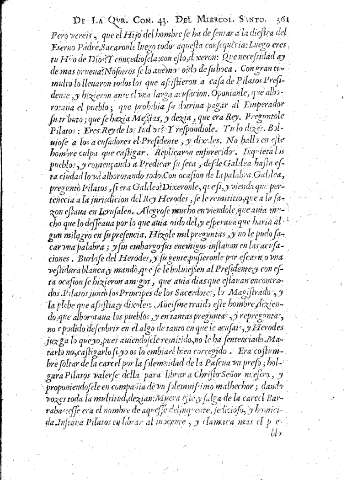 De La Qvr. Com. 43. Del Miercol. Santo. 361
Pero vereis, que el Hijo del hombre se ha de sentar a la diestra del
Eterno Padre. Sacaronle luego todos aquesta consequẽcia: Luego eres
tu Hijo de Dios? Y concediosela con esto, dixeron: Que necesidad ay
de mas prueua? Nosotros se lo auemos oido de su boca. Con gran tu-
multo lo lleuaron todos los que assistieron a casa de Pilatos Presi-
dente, y hizieron ante el vna larga acusacion. Oponianle, que albo-
rotaua el pueblo; que prohibia se diera pagar al Emperador
su tributo; que se hazia Mesias, y dezia, que era Rey. Preguntole
Pilatos: Eres Rey de los Iudios? Y respondiole. Tu lo dizes. Bol-
uiose a los acusadores el Presidente, y dixoles. No hallo en este
hombre culpa que castigar. Replicaron
pueblo, y començando a Predicar su seta, desde Galilea hasta es-
ta ciudad lo va alborotando todo. Con ocasion de la palabra Galilea,
preguntò Pilatos, si era Galileo? Dixeronle, que si, y viendo que per-
tenecia a la jurisdicion del Rey Herodes, se le remitio, que a la sa-
zon estaua en Ierusalen. Alegrose mucho en viendole, que auia mu-
cho que lo desseaua por lo que auia oido del, y esperaua que haria al-
gun milagro en su presencia. Hizole mil preguntas, y no le pudo sa-
car vna palabra; y sin embargo sus enemigos instauan en las acusa-
ciones. Burlose del Herodes, y su gente, pusieronle por escarnio vna
vestidura blanca, y mandò que se le boluiessen al Presidente, y con es-
ta ocasion se hizieron amigos, que auia dias que estauan encontra-
dos. Pilatos juntò los Principes de los Sacerdotes, los Magistrados, y
la plebe que assistia, y dixoles. Aueisme traido este hombre dizien-
do que alborotaua los pueblos, y en tantas preguntas, y repreguntas,
no è podido descubrir en el algo de tanto en que le acusais, y Herodes
juzga lo que yo, pues auiendosele remitido, no le ha sentenciado. Ma-
tarlo no, castigarlo si, yo os lo embiarè bien corregido. Era costum-
bre soltar de la carcel por la solemnidad de la Pascua vn preso; hol-
gara Pilatos valerse della para librar a Christo Señor nuestro, y
proponiendosele en compañia de vn famosissimo malhechor; dando
vozes toda la multitud, dezian: Muera este, y salga de la carcel Bar-
rabas: esse era el nombre de aquesse delinquente, sedicioso, y homici-
da. Instaua Pilatos en librar al inocente, y clamaua mas el pue-
blo